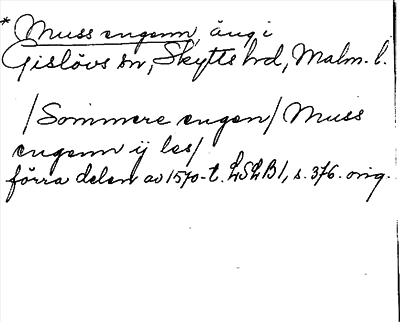 * Muss engenn, äng i
Gislövs sn, Skytts hd, Malm. l.
/Sommere engen/ Muss
engenn ij les/
förra delen av 1570-t. LSLB1, s. 376. orig.